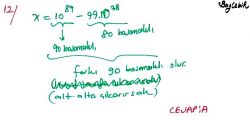 12/ x = 10⁸⁹ - 99.10⁷⁸
90 basamaklı 80 basamaklı
farkı 90 basamaklı olur
(alt alta çıkarırsak)
CEVAP:A